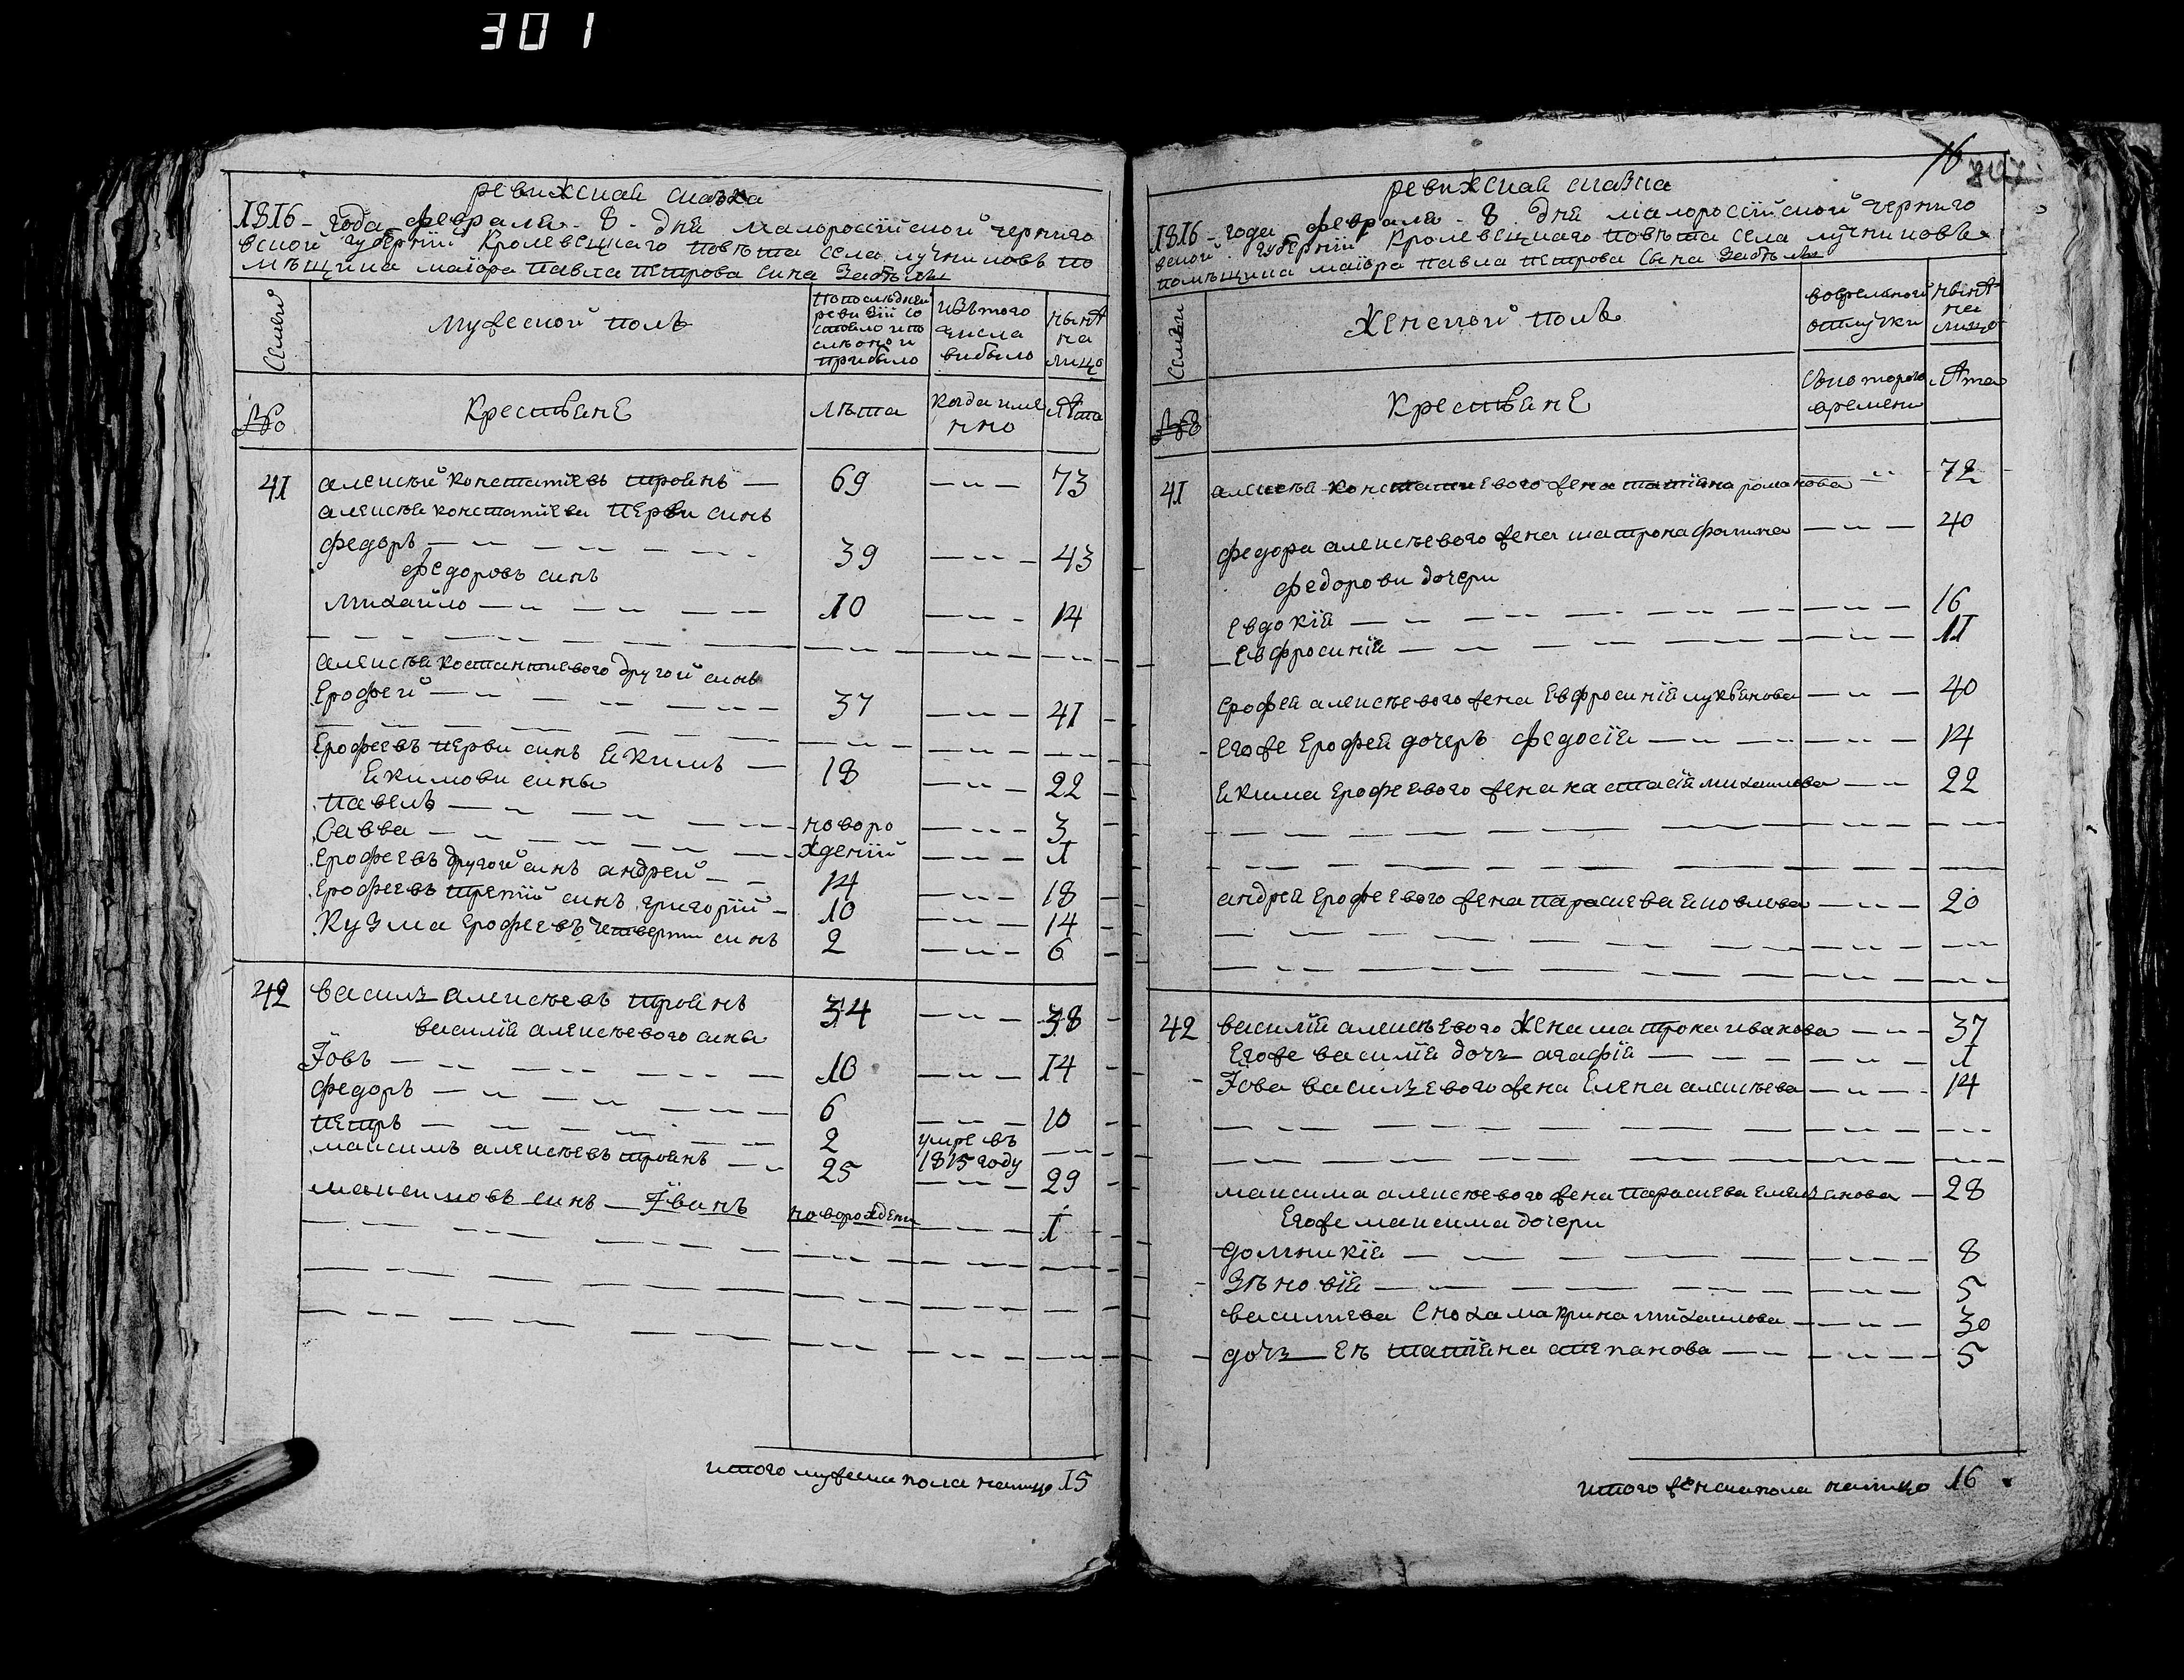 301
ревижская сказка
1816 - года февраля - 8 - дня малороссїйской черниго
вской губернїи Кролевецкаго повѣта села лучниковъ по
мѣщика маіора павла петрова сина
Семьи
Мужеской полъ
По последней
ревизїи со
стояло и по
слѣ оной
прибило
изъ того
числа
вибило
нынѣ
на
лицо
№
Крестьяне
Лѣта
когда име
нно
Лѣта
41 алексѣй констатіевъ троянъ — 69 — 73
алексѣя констатіеви перви синъ
федоръ — 39 — 43
федоровъ синъ
Михайло — 10 — 14
алексѣя костантиевого другой синъ
Ерофей — 37 — 41
Ерофеевъ перви синъ Екимъ — 18 — 22
Екимови сины
павелъ — новоро — 3
Савва — жденїй — 1
Ерофеевъ другой синъ андрей — 14 — 18
Ерофеевъ третїй синъ григорїй — 10 — 14
Кузма Ерофеевъ четверти синъ 2 — 6
42 василь алексѣевъ троянъ 34 — 38
василїя алексѣевого сины
Іовъ — 10 — 14
федоръ — 6 — 10
петръ — 2 умре въ
1815 году
максимъ алексѣевъ троянъ — 25 — 29
максимовъ синъ — Іванъ новорождени — 1
итого мужеска пола налицо 15
16
ревижская сказка
1816 - года февраля - 8 - дня малороссїйской черниго
вской губернїи Кролевецкаго повѣта села лучниковъ
помѣщика маіора павла петрова сына
Семьи
Женской полъ
вовременной
отлучки
нынѣ
на
лицо
№
Крестьяне
Съкоторого
времени
Лѣта
41 алексѣя констатиевого жена татїяна романова — 72
федора алексѣевого жена матрона фомина — 40
федорови дочери
Евдокїя — 16
Евфросинїя — 11
Ерофея алексѣевого жена Евфросинїя лукьянова — 40
Егоже Ерофея дочерь федосїя — 14
Екима Ерофеевого жена настасїя михаилова — 22
андрея Ерофеевого жена параскева яковлева — 20
42 василїя алексѣевого жена матрона иванова — 37
Егоже василїя дочь агафїя — 1
Іова васильевого жена Елена алексѣева — 14
максима алексѣевого жена параскева емельянова — 28
Егоже максима дочери
домникїя — 8
Зѣновїя — 5
василиева сноха макрина михаилова — 30
дочь — еѣ татїяна степанова — 5
итого женска пола налицо 16